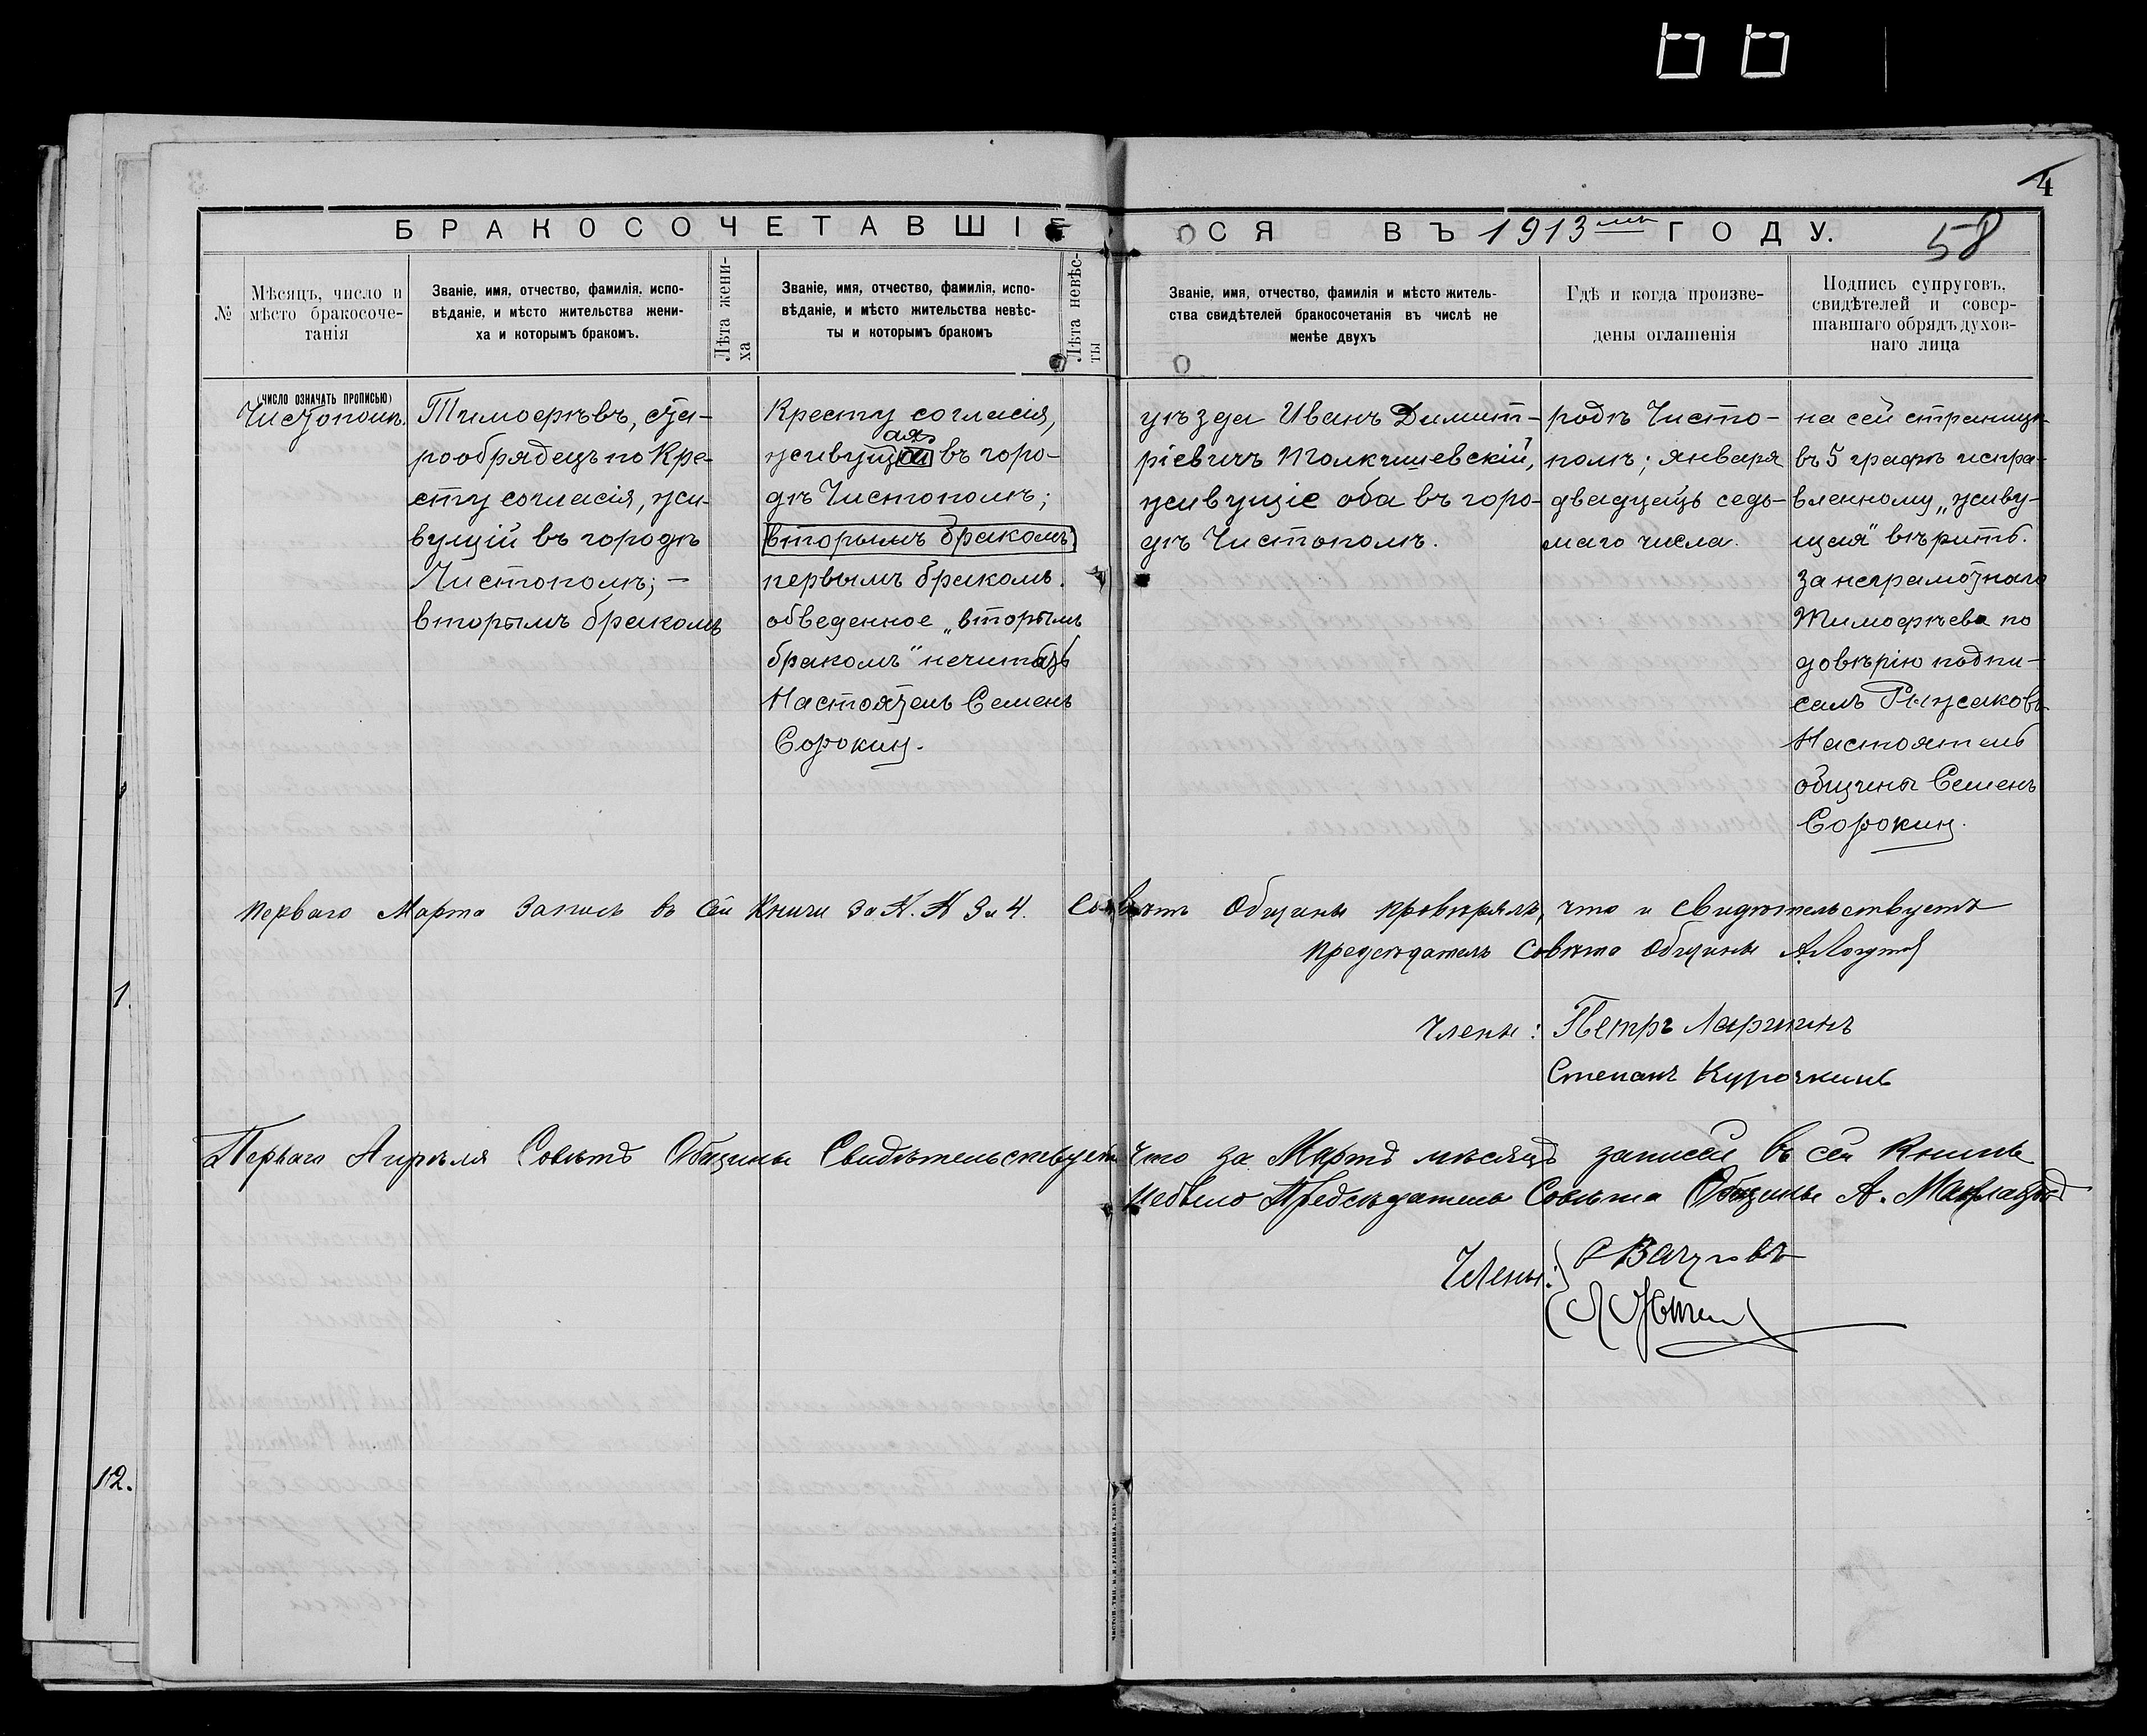 4
БРАКОСОЧЕТАВШІЕСЯ ВЪ 1913мъ ГОДУ.
58
№
Мѣсяцъ, число и
мѣсто бракосоче-
танія
Званіе, имя, отчество, фамилія, испо-
вѣданіе, и мѣсто жительства жени-
ха и которымъ бракомъ.
Лѣта жени-
ха
Званіе, имя, отчество, фамилія, испо-
вѣданіе, и мѣсто жительства невѣс-
ты и которымъ бракомъ
Лѣта невѣс-
ты
Званіе, имя, отчество, фамилія и мѣсто житель-
ства свидѣтелей бракосочетанія въ числѣ не
менѣе двухъ
Гдѣ и когда произве-
дены оглашенія
Подпись супруговъ,
свидѣтелей и совер-
шавшаго обрядъ духов-
наго лица
(ЧИСЛО ОЗНАЧАТЬ ПРОПИСЬЮ)
Чистополѣ.
Тимофѣевъ, ста-
рообрядецъ по Кре-
сту согласія, жи-
вущій въ городѣ
Чистополѣ; —
вторымъ бракомъ
Кресту согласія,
ая
живущ въ горо-
дѣ Чистополѣ;
вторымъ бракомъ
первымъ бракомъ.
обведенное „вторымъ
бракомъ" нечитать
Настоятель Семенъ
Сорокин.
уѣзда Иванъ Димит-
ріевичъ Толкишевскій,
живущіе оба въ горо-
дѣ Чистополѣ.
родѣ Чисто-
полѣ; января
двадцать седь-
маго числа.
на сей страницѣ
въ 5 графѣ испра-
вленному „живу-
щая" вѣрить.
За неграмотнаго
Тимофѣева по
довѣрію подпи-
салъ Рыжаковъ
Настоятель
общины Семенъ
Сорокин.
Перваго Марта Запись въ сей Книги за №. № 3 и 4. Совѣтъ Общины провѣрялъ, что и свидѣтельствуетъ
Предсѣдатель Совѣта Общины
Члены: Петръ Ларинъ
Степанъ Курочкинъ
Перваго Апрѣля Совѣтъ Общины Свидѣтельствуетъ что за Мартъ мѣсяцъ записей въ сей Книгѣ
небыло Предсѣдатель Совѣта Общины А.
Члены:
1.
12.